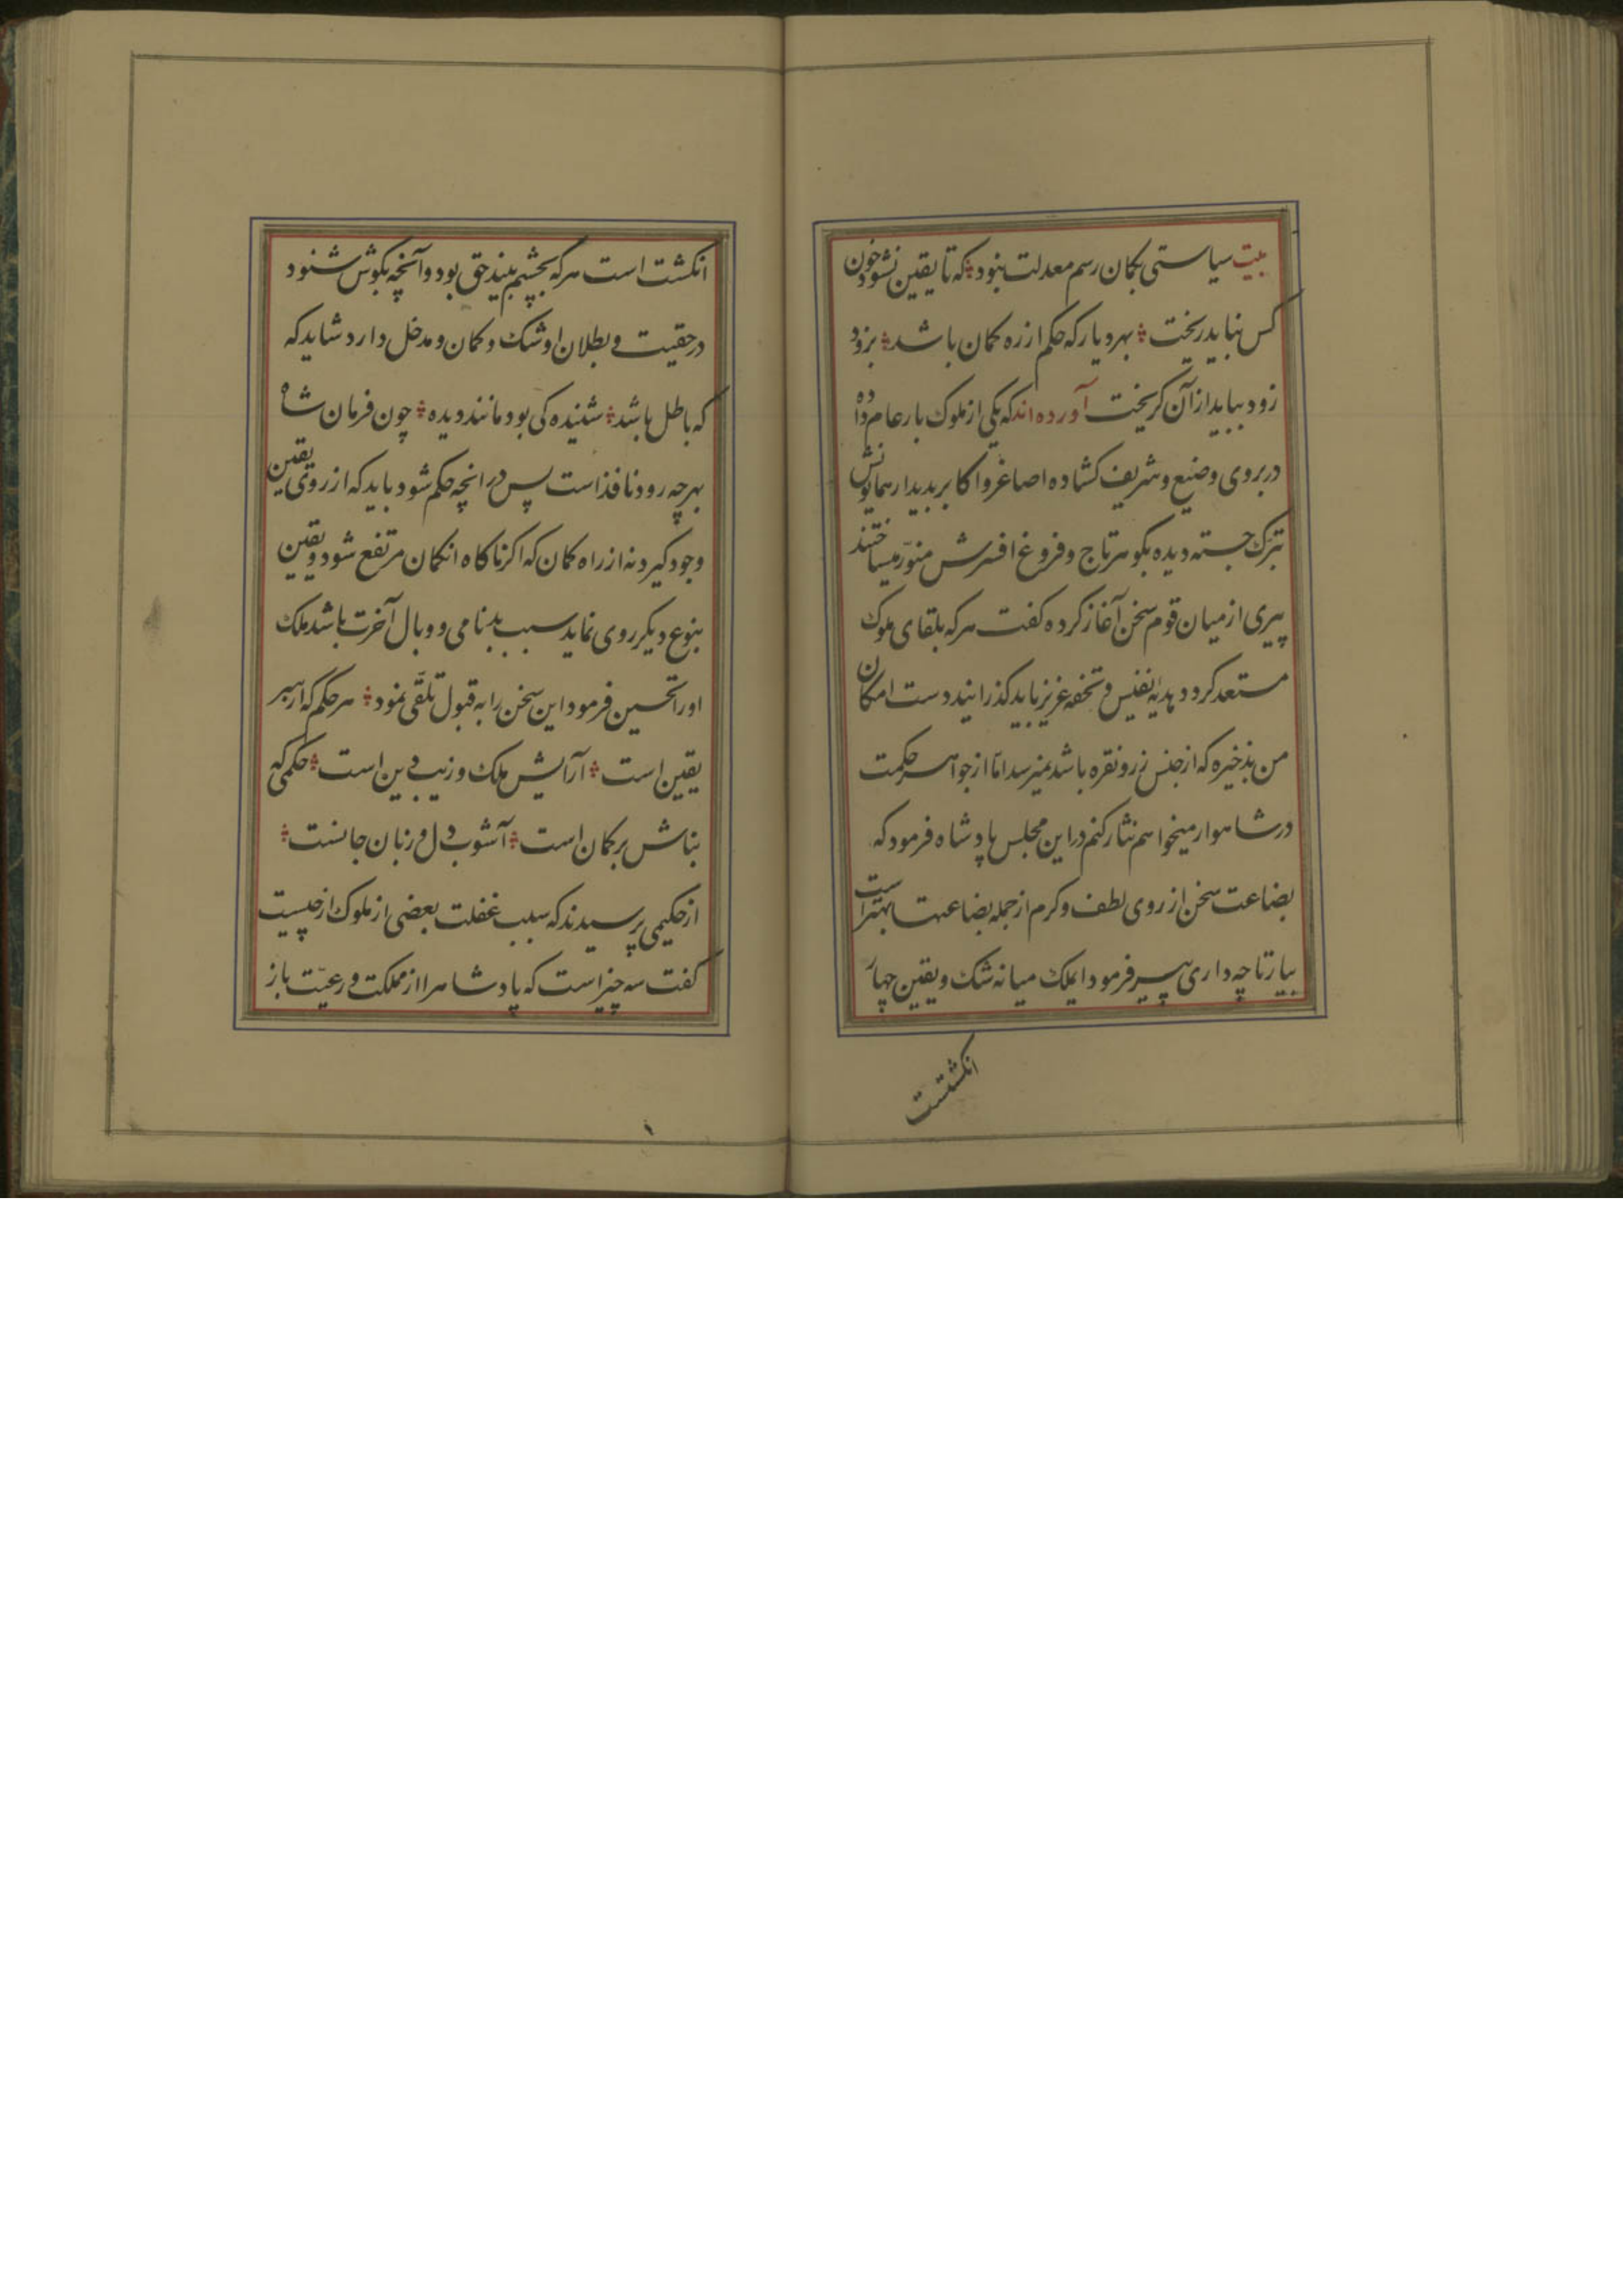 بیت سیاستی بکمان رسم معدلت نبود که تا یقین نشود خون
کس نباید ریخت بهر دیار که حکم از ره کمان باشد بزود
زود بباید از آن کریخت آورده‌اند که یکی از ملوک بار عام داده
در بروی وضیع و شریف کشاده اصاغر و اکابر بدیدار همایونش
تبرک جسته دیده بکوهر تاج و فروغ افسرش منوّر میساختند
پیری از میان قوم سخن آغاز کرده کفت هر که بلقای ملوک
مستعد کردد هدیهٔ نفیس و تحفه عزیز باید کذرانید دست امکان
من بذخیره که از جنس زر و نقره باشد نمیرسد امّا از جواهر حکمت
در شاهوار میخواهم نثار کنم در این مجلس پادشاه فرمود که
بضاعت سخن از روی لطف و کرم از جمله بضاعتها بهتر است
بیار تا چه داری پیر فرمود ایملک میانه شک و یقین چهار
انکشتست
انکشت است هر که بچشم بیند حق بود و آنچه بکوش شنود
در حقیت و بطلان او شک و کمان و مدخل دارد شاید که
که باطل باشد شنیده کی بود مانند دیده چون فرمان شاه
بهر چه رود نافذ است پس در انچه حکم شود باید که از روی یقین
وجود کیرد نه از راه کمان که اکر ناکاه انکمان مرتفع شود و یقین
بنوع دیکر روی نماید سبب بدنامی و وبال آخرت باشد ملک
اورا تحسین فرمود این سخن را به قبول تلقّی نمود هر حکم که از سر
یقین است آرایش ملک و زیب دین است حکمی که
بناش بر کمان است آشوب دل و زبان جانست
از حکیمی پرسیدند که سبب غفلت بعضی از ملوک از چیست
کفت سه چیز است که پادشاهرا از مملکت و رعیّت باز